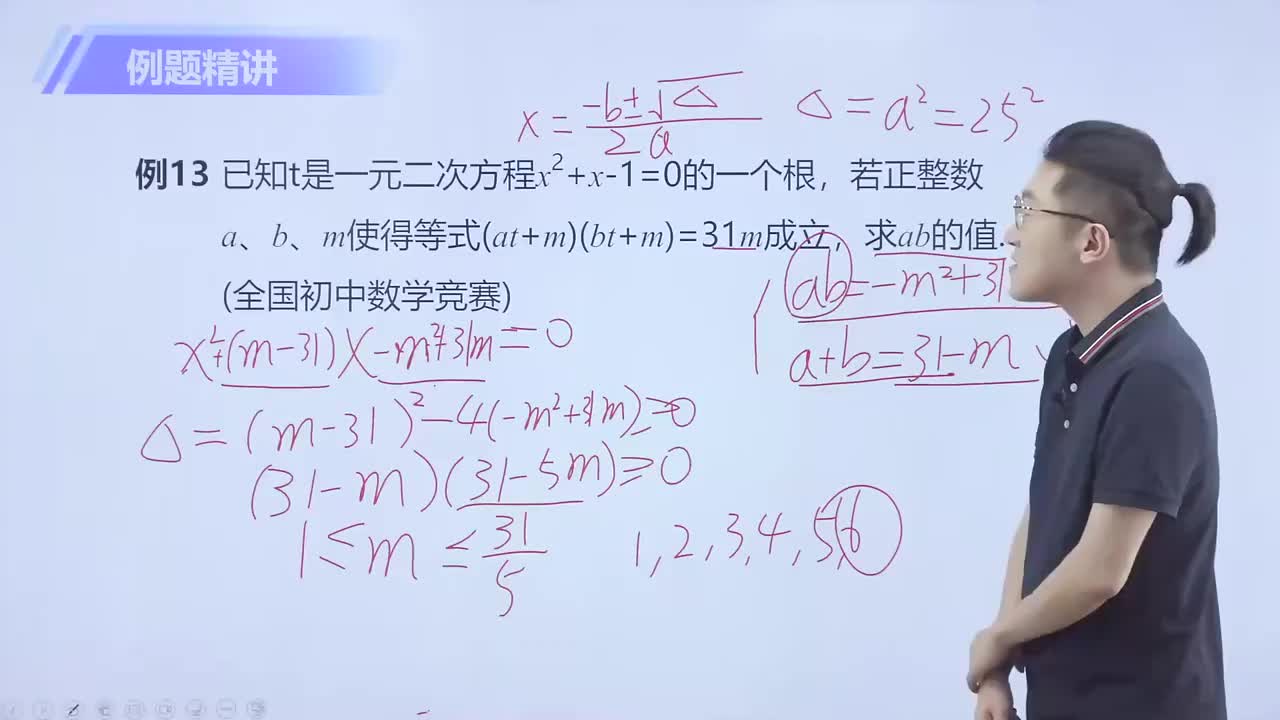 例题精讲
x = -b±√Δ / 2a Δ = a² = 25²
例13 已知t是一元二次方程x²+x-1=0的一个根，若正整数
a、b、m使得等式(at+m)(bt+m)=31m成立，求ab的值.
(全国初中数学竞赛)
ab=-m²+31
x²+(m-31)x-m²+31m=0
a+b=31-m
Δ=(m-31)²-4(-m²+31m)≥0
(31-m)(31-5m)≥0
1≤m≤31/5 1,2,3,4,5,6